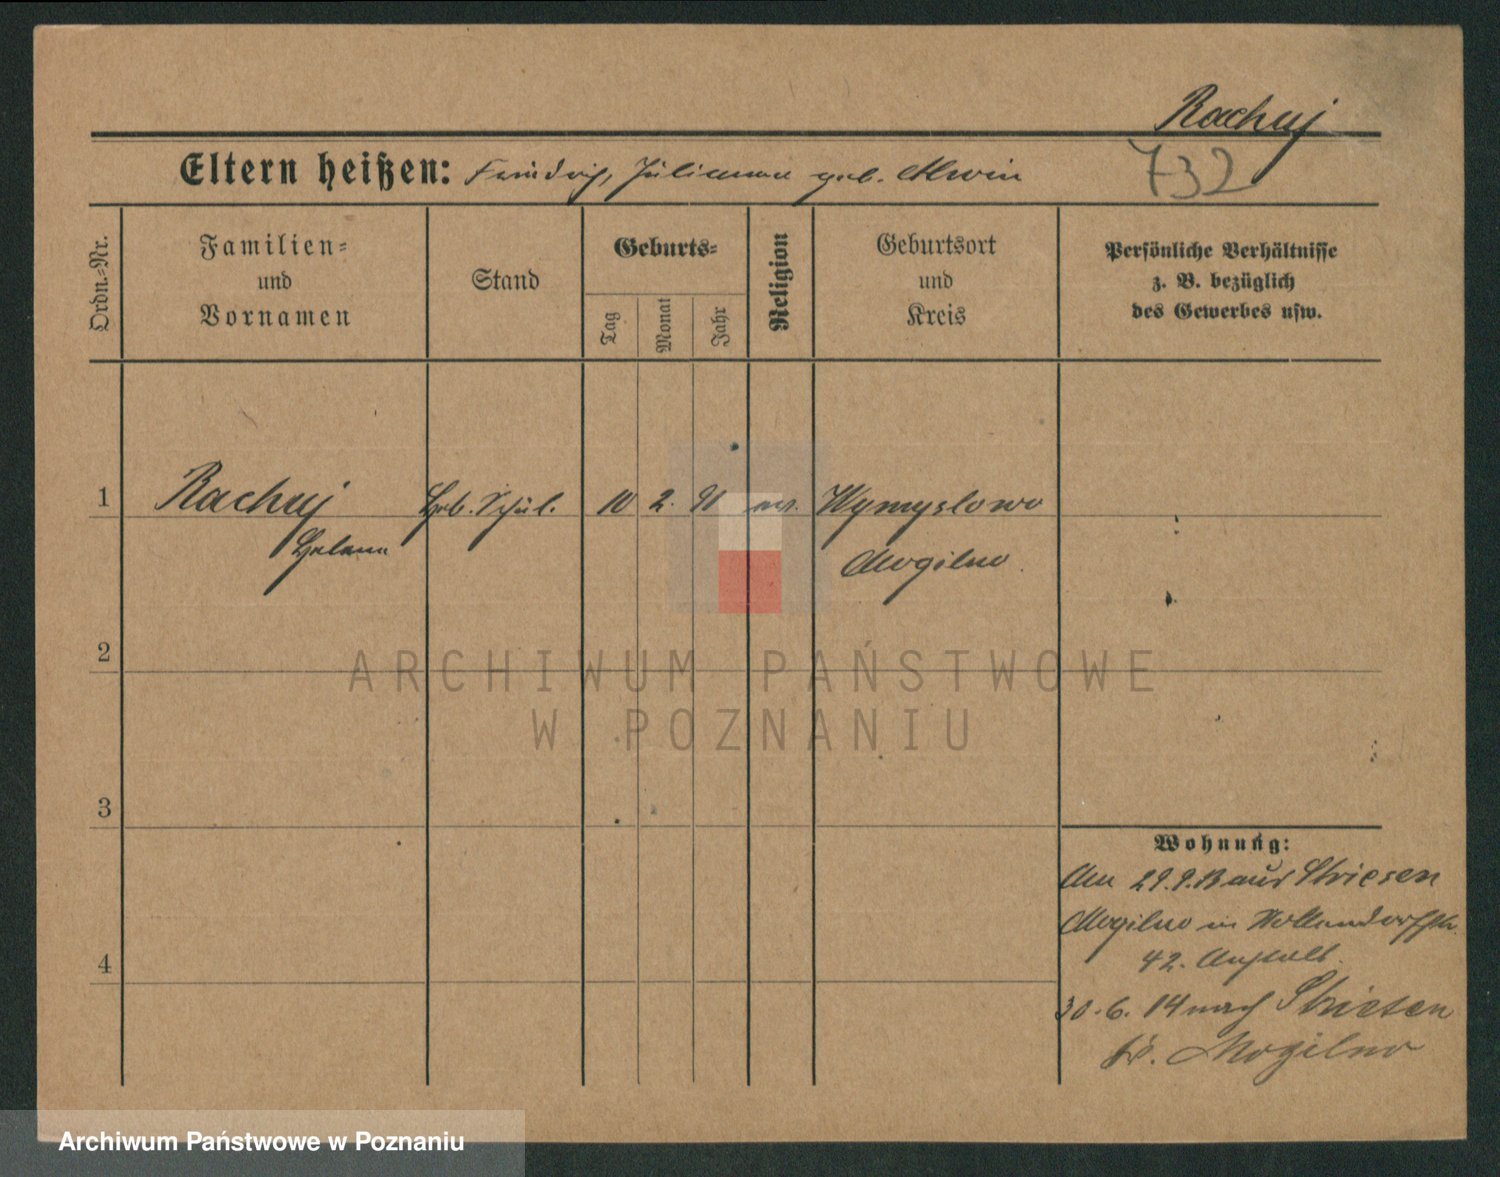 Rachuj
732
Eltern heißen: Friedrich, Julianna geb. Alwin
Ordn.-Nr.
Familien=
und
Vornamen
Stand
Geburts=
Tag
Monat
Jahr
Religion
Geburtsort
und
Kreis
Persönliche Verhältnisse
z. B. bezüglich
des Gewerbes usw.
1
Rachuj
Helene
Heb. Schül.
10
2.
91
ev.
Wymyslowo
Mogilno.
2
3
4
Wohnung:
Am 29.9.13 aus Striesen
Mogilno in
42. Anstalt.
30.6.14 nach Striesen
Kr. Mogilno
ARCHIWUM PAŃSTWOWE
W POZNANIU
Archiwum Państwowe w Poznaniu